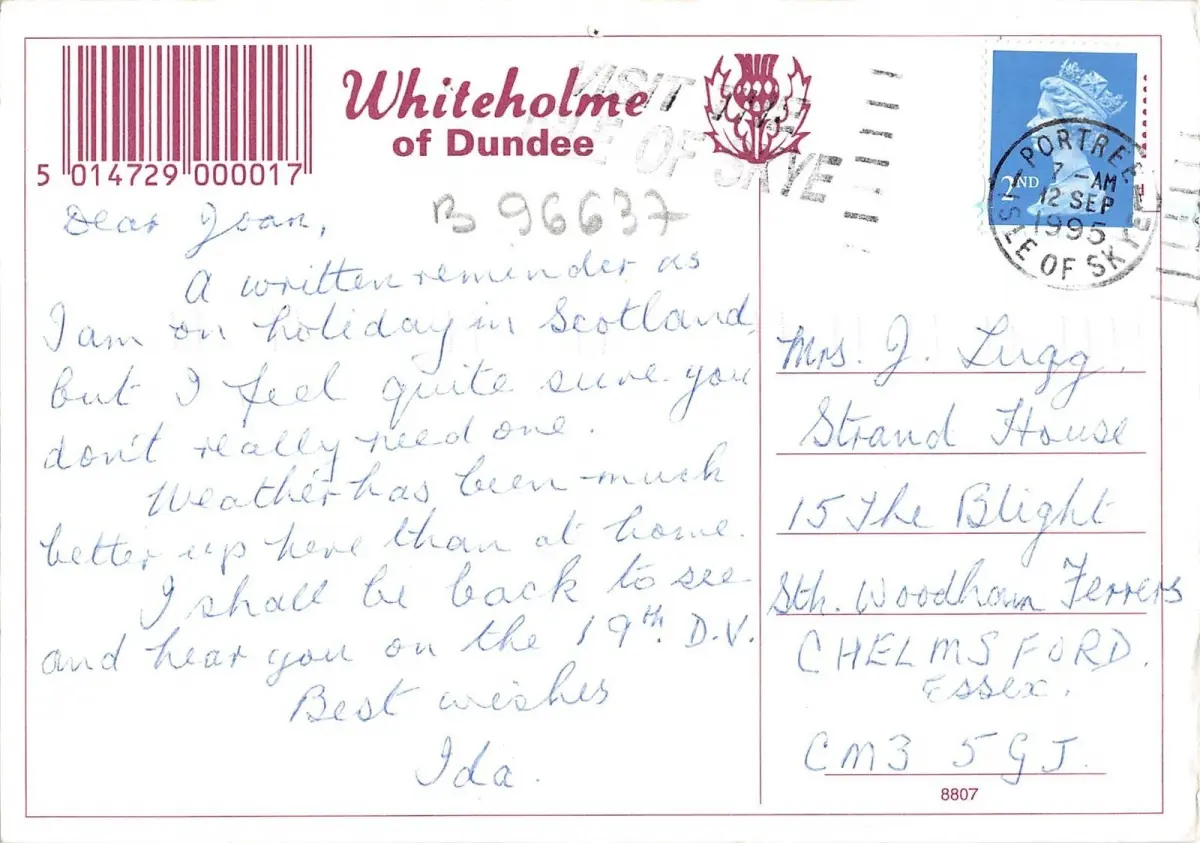 5 014729 000017
Whiteholme
of Dundee
VISIT
ISLE OF SKYE
2ND
PORTREE
7 - AM
12 SEP
1995
ISLE OF SKYE
B 96637
Dear Joan,
A written reminder as
I am on holiday in Scotland
but I feel quite sure you
don't really need one.
Weather has been much
better up here than at home.
I shall be back to see
and hear you on the 19th. D.V.
Best wishes
Ida.
Mrs. J. Lugg.
Strand House
15 The Blight
Sth. Woodham Ferrers
CHELMSFORD.
Essex.
CM3 5GJ.
8807